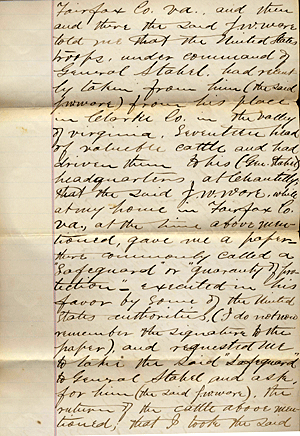 Fairfax Co. Va., and then
and there the said J. W. Ware
told me that the United States
troops, under command of
General Stahel, had recent
ly taken from him (the said
J W Ware) from his place
in Clarke Co. in the Valley
of Virginia, Seventeen head
of valuable cattle and had
driven them to his (Gen. Stahel's)
headquarters, at Chantilly
that the said J. W. Ware, while
at my home in Fairfax Co.
Va, at the time above men
tioned, gave me a paper
then commonly called a
"Safeguard or "guaranty of pro
tection" executed in his
favor by some of the United
States authorities, (I do not now
remember the signature to the
paper), and requested me
to take the said "Safeguard"
to General Stahel and ask
for him (the said J W Ware), the
return of the cattle above men
tioned; that I took the said